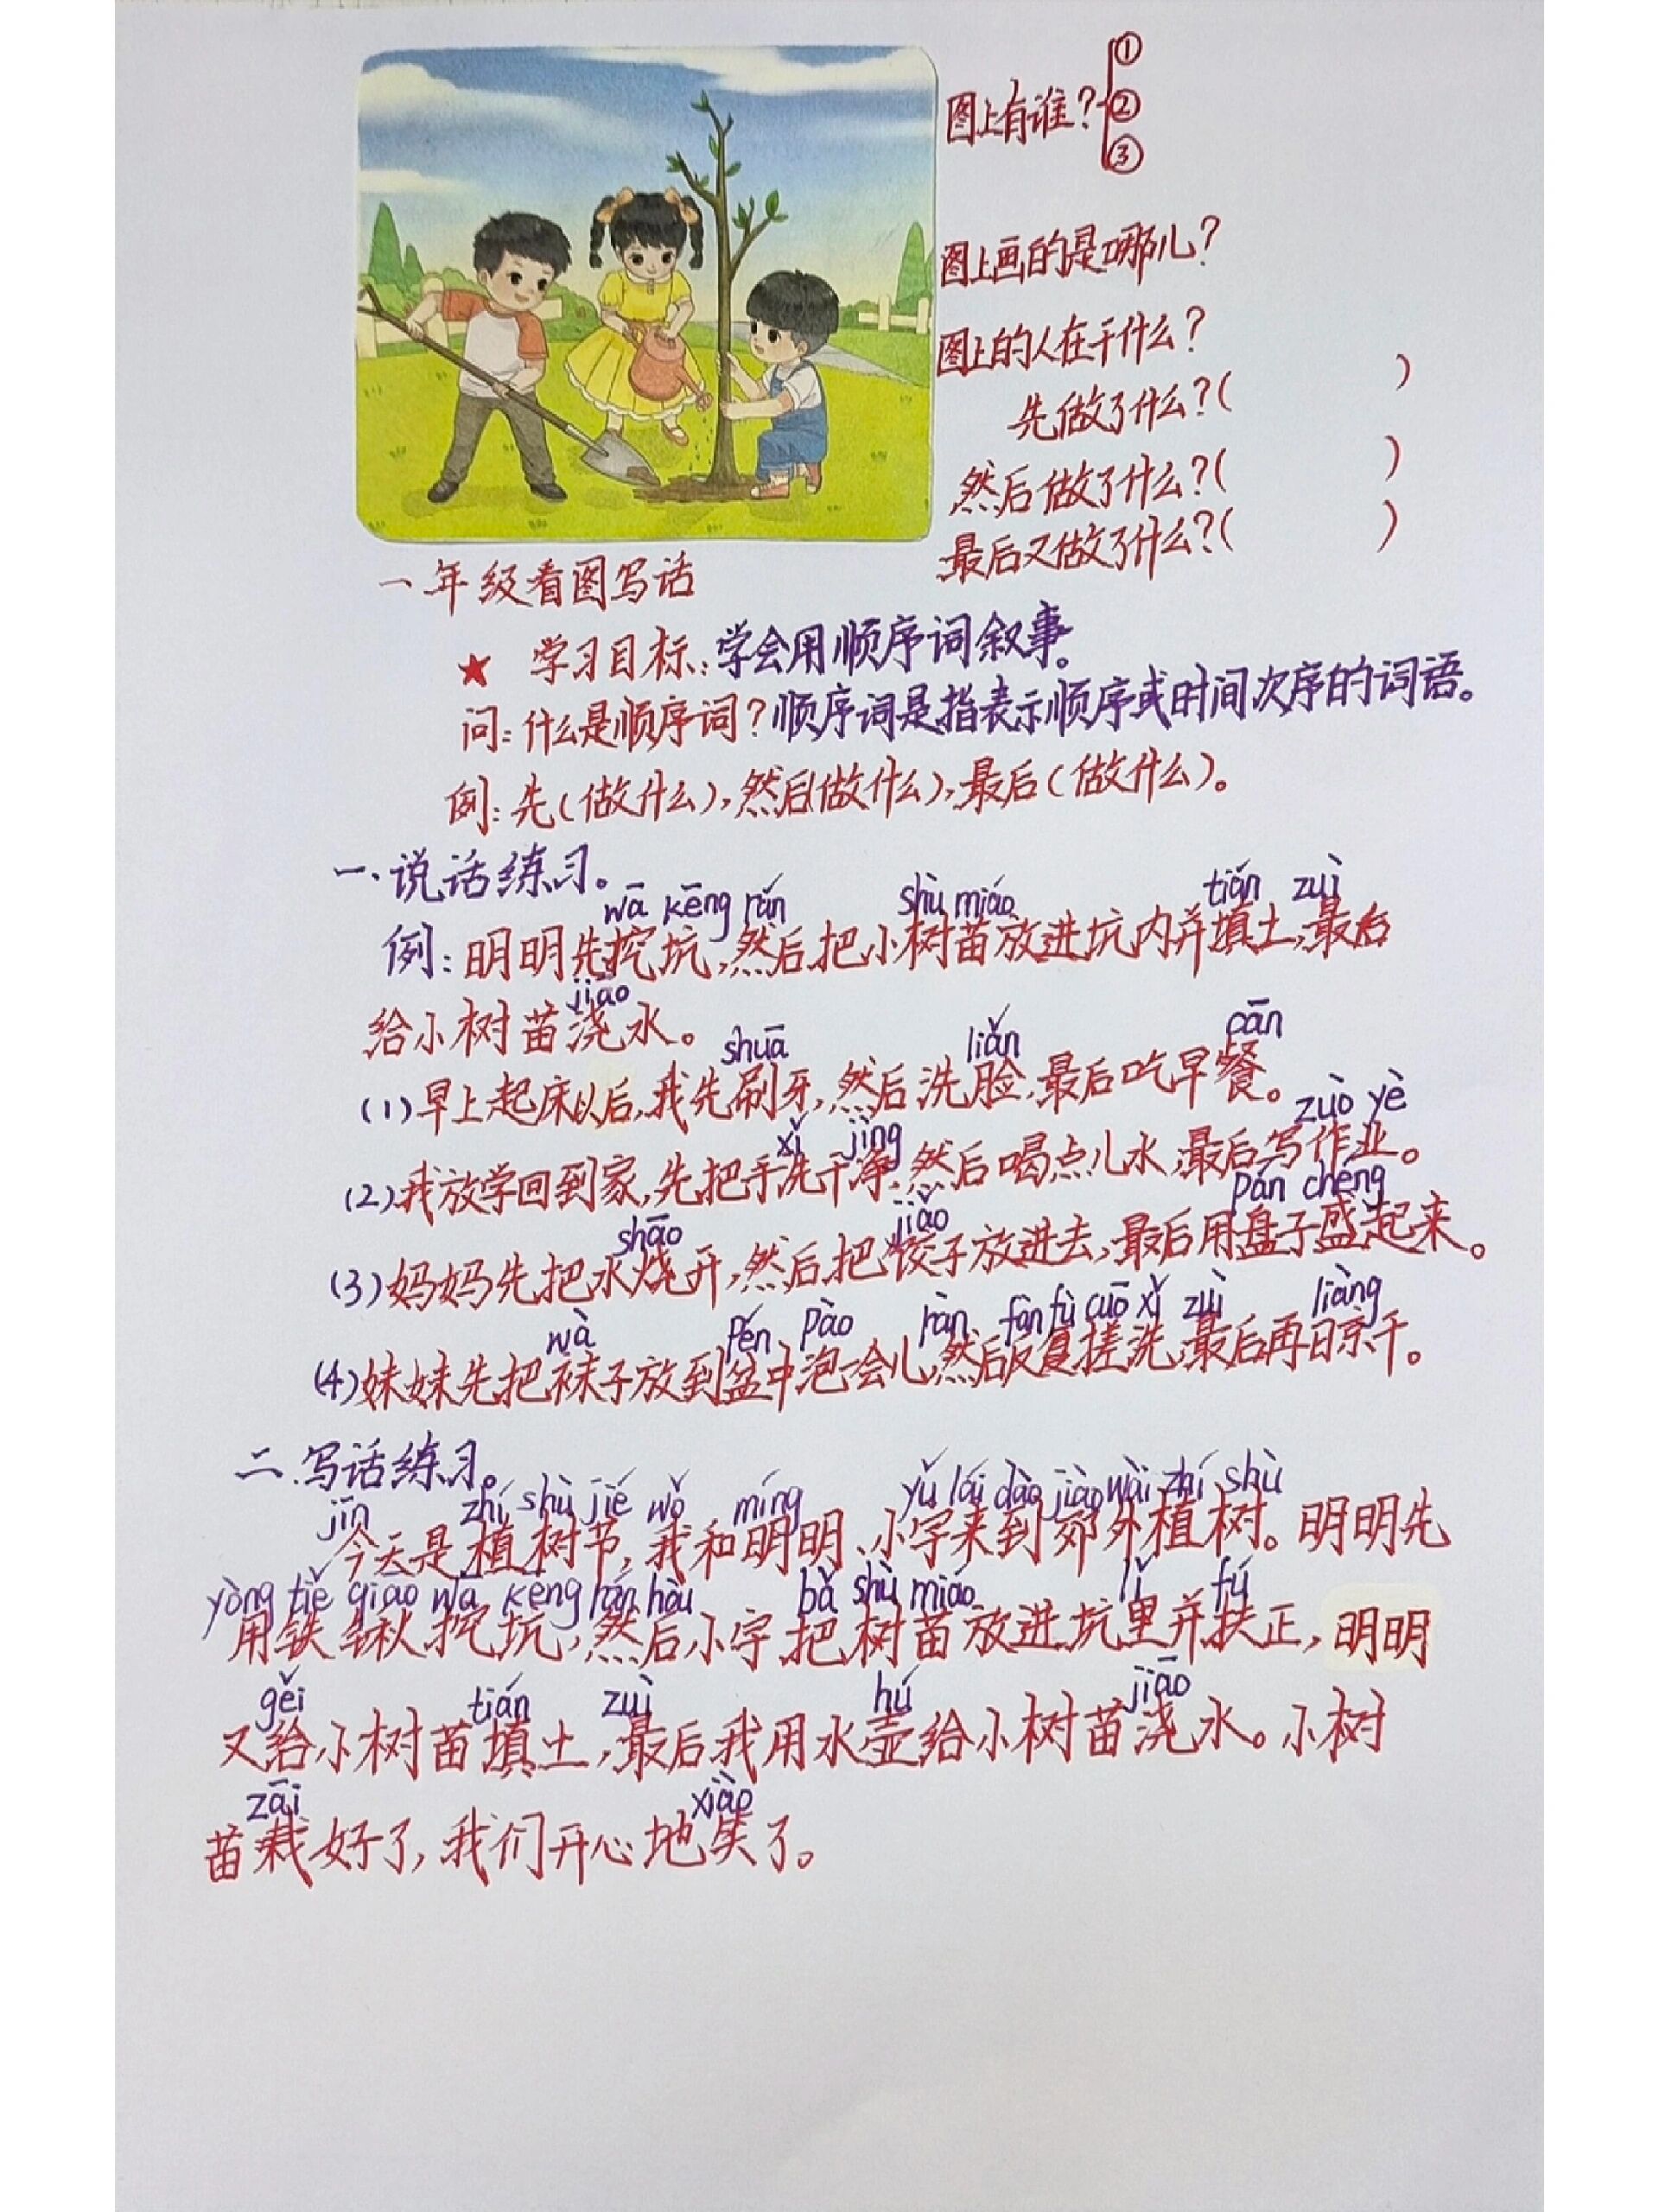 图上有谁？
①
②
③
图上画的是哪儿？
图上的人在干什么？
先做了什么？( )
然后做了什么？( )
最后又做了什么？( )
一年级看图写话
★ 学习目标：学会用顺序词叙事。
问：什么是顺序词？顺序词是指表示顺序或时间次序的词语。
例：先（做什么），然后（做什么），最后（做什么）。
一、说话练习。
wā kēng rán shù miáo tián zuì
例：明明先挖坑，然后把小树苗放进坑内并填土，最后
jiāo
给小树苗浇水。
shuā liǎn cān
(1)早上起床以后，我先刷牙，然后洗脸，最后吃早餐。
xǐ jìng zuò yè
(2)我放学回到家，先把手洗干净，然后喝点儿水，最后写作业。
shāo jiǎo pán chéng
(3)妈妈先把水烧开，然后把饺子放进去，最后用盘子盛起来。
wà pén pào rán fǎn fù cuō xǐ zuì liàng
(4)妹妹先把袜子放到盆中泡一会儿，然后反复搓洗，最后再晾干。
二.写话练习。
jīn zhí shù jié wǒ míng yǔ lái dào jiāo wài zhí shù
今天是植树节，我和明明、小宇来到郊外植树。明明先
yòng tiě qiao wā kēng rán hòu bǎ shù miáo lǐ fú
用铁锹挖坑，然后小宇把树苗放进坑里并扶正，明明
gěi tián zuì hú jiāo
又给小树苗填土，最后我用水壶给小树苗浇水。小树
zāi xiào
苗栽好了，我们开心地笑了。